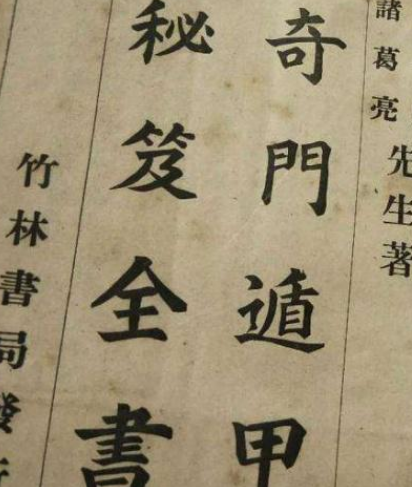 諸葛亮先生著
奇門遁甲
秘笈全書
竹林書局發行